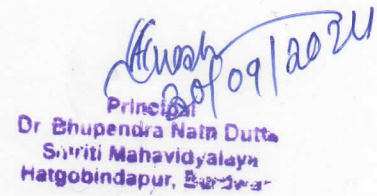 20/09/2024
Principal
Dr Bhupendra Nath Dutta
Smriti Mahavidyalaya
Hatgobindapur, Burdwan